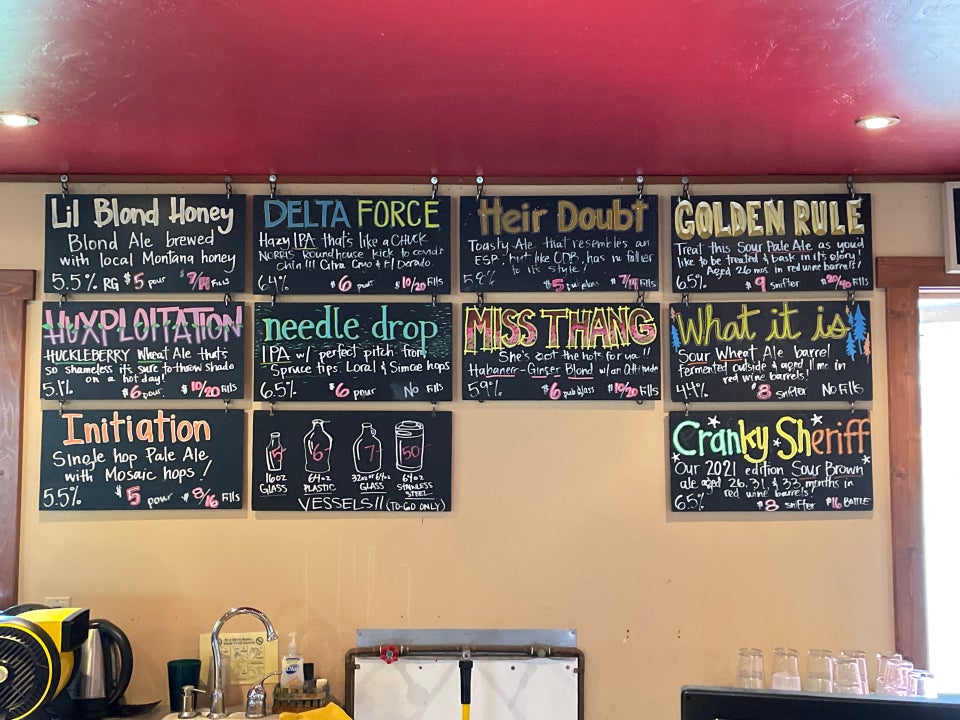 Lil Blond Honey
Blond Ale brewed
with local Montana honey
5.5% RG $5 pour $9/ Fills
DELTA FORCE
Hazy IPA that's like a CHUCK
NORRIS Roundhouse kick to covid's
chin!!! Citra Cmo & El Dorado
6.4% $6 pour $10/20 Fills
Heir Doubt
Toasty Ale that resembles an
ESB, but like ODB, has no father
to its style!
$5 pub glass $7/14 Fills
GOLDEN RULE
Treat this Sour Pale Ale as you'd
like to be treated & bask in its glory!
Aged 26 mos in red wine barrels!
6.5% $9 snifter $20/40 Fills
HUXPLOITATION
HUCKLEBERRY Wheat Ale that's
so shameless it's sure to throw shade
on a hot day!
5.1% $6 pour $10/20 Fills
needle drop
IPA w/ perfect pitch from
Spruce tips. Loral & Simcoe hops
6.5% $6 pour No Fills
MISS THANG
She's got the hots for ya!!
Habanero-Ginger Blond w/an Attitude
5.9% $6 pub glass $10/20 Fills
What it is
Sour Wheat Ale barrel
fermented outside & aged in
red wine barrels!
4.4% $8 snifter NO Fills
Initiation
Single hop Pale Ale
with Mosaic hops!
5.5% $5 pour $8/16 Fills
5 6 7 50
16oz 64oz 32oz or 64oz 64oz
GLASS PLASTIC GLASS STAINLESS
STEEL
VESSELS!! (TO-GO ONLY)
Cranky Sheriff
Our 2021 edition Sour Brown
ale aged 26, 31, & 33 months in
red wine barrels!
6.5% $8 snifter $16 BOTTLE